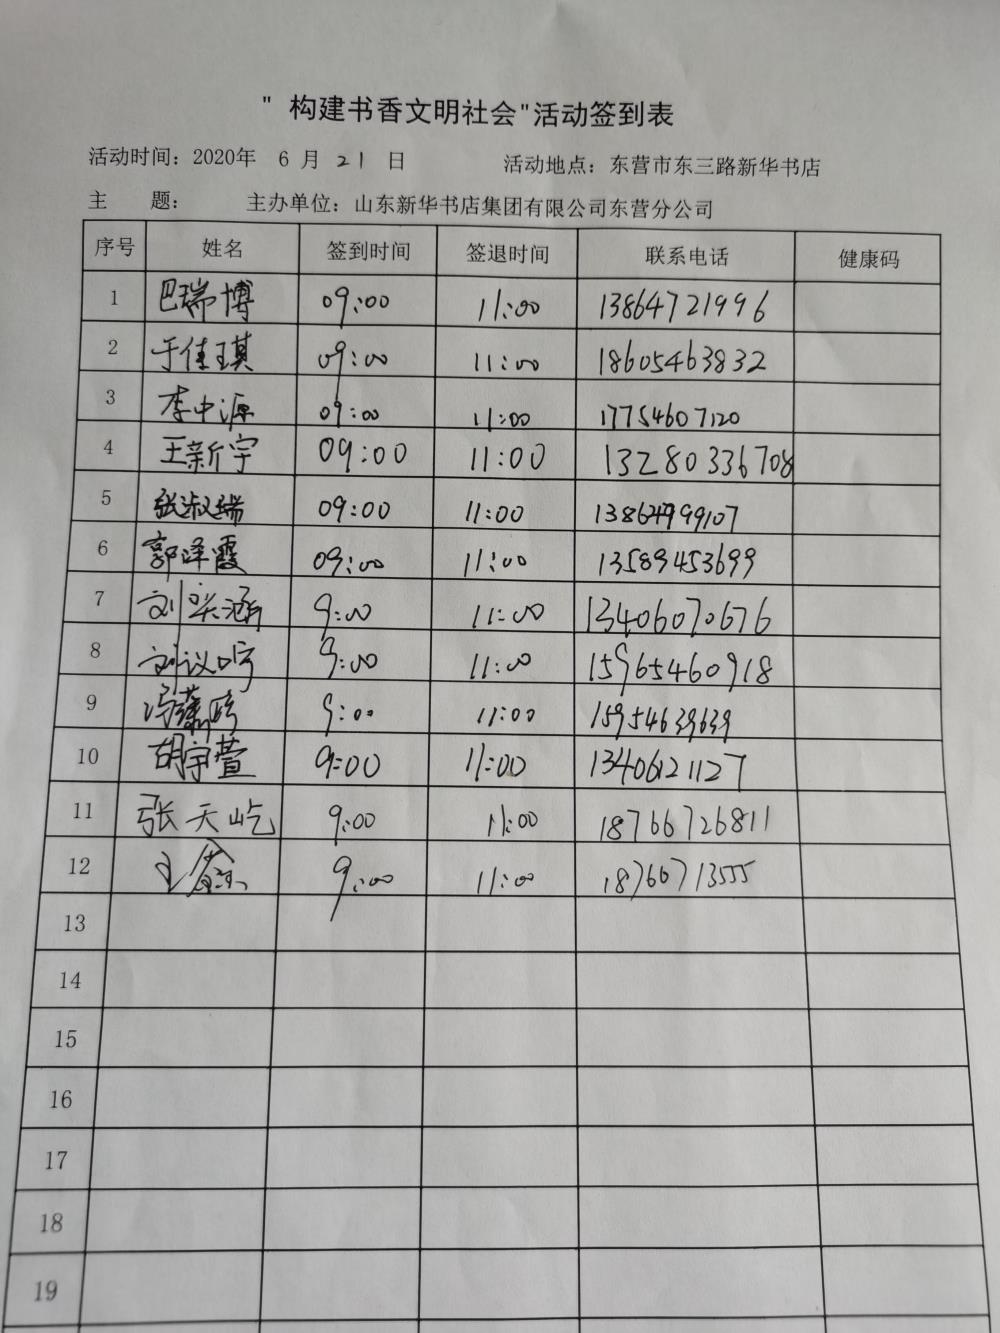 "构建书香文明社会"活动签到表
活动时间：2020年 6 月 21 日 活动地点：东营市东三路新华书店
主 题： 主办单位：山东新华书店集团有限公司东营分公司
序号 姓名 签到时间 签退时间 联系电话 健康码
1 巴瑞博 09:00 11:00 13864721996
2 于佳琪 09:00 11:00 18605463832
3 李中源 09:00 11:00 17754607120
4 王新宇 09:00 11:00 13280336708
5 张淑瑞 09:00 11:00 13864999107
6 郭泽霞 09:00 11:00 13589453699
7 刘奕涵 9:00 11:00 13406070676
8 刘议 9:00 11:00 15965460918
9 冯 9:00 11:00 15954639639
10 胡宇萱 9:00 11:00 13406121127
11 张天屹 9:00 11:00 18766726811
12 王 9:00 11:00 18766713555
13
14
15
16
17
18
19